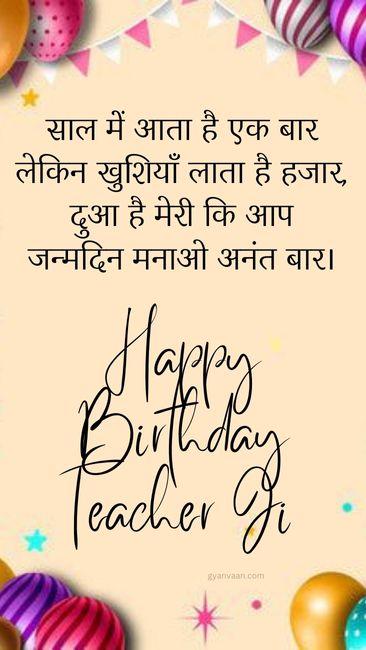 साल में आता है एक बार
लेकिन खुशियाँ लाता है हजार,
दुआ है मेरी कि आप
जन्मदिन मनाओ अनंत बार।
Happy
Birthday
Teacher Ji
gyanvaan.com